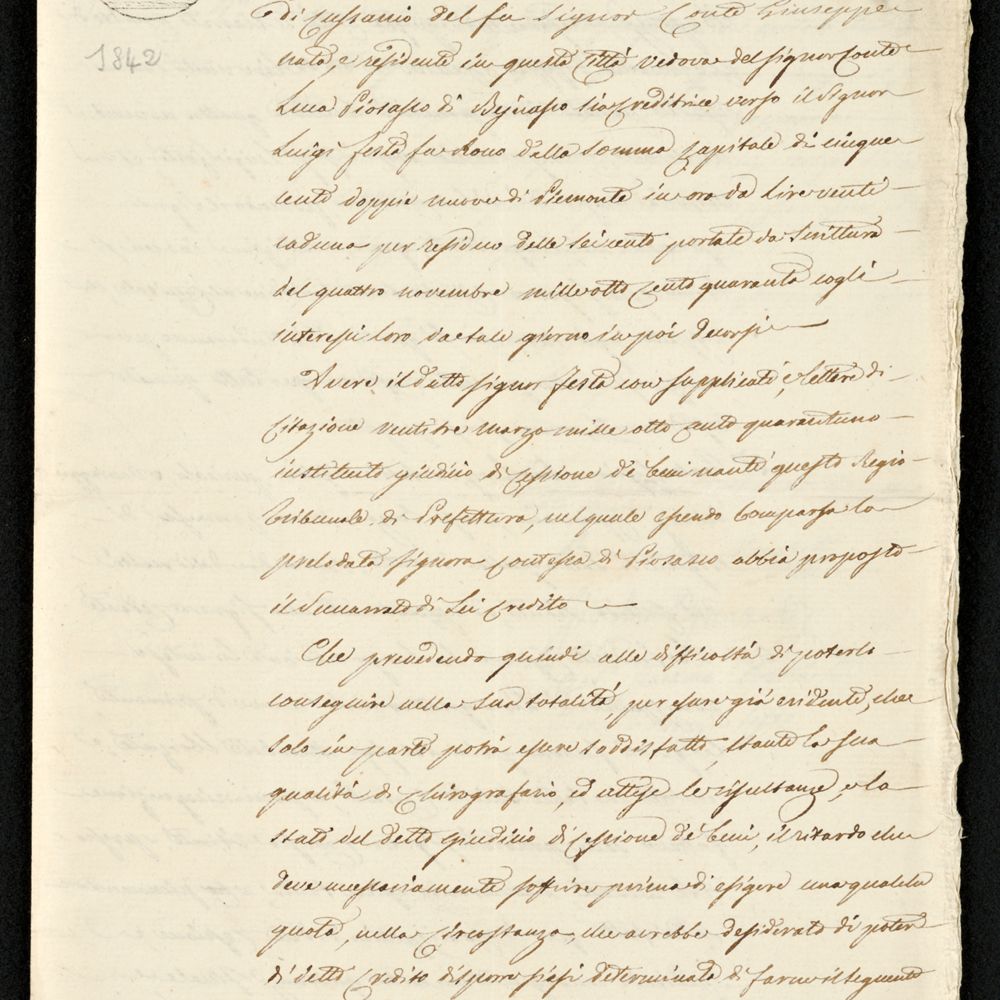 1842
Di Cussanio del fu Signor Conte Giuseppe
nata, e residente in questa Città vedova del signor Conte
Luca Piosasco di Beinasco sia creditrice verso il Signor
Luigi Festa fu Rono della somma Capitale di cinque
cento doppie nuove di Piemonte in oro da Lire venti
caduna per residuo delle seicento portate da Scrittura
del quattro novembre mille otto cento quaranta cogli
interessi loro da tale giorno in poi decorsi
Avere il detto signor Festa con supplica, e lettere di
Citazione ventitre Marzo mille otto cento quarantuno
instituito giudicio di Cessione de' beni nanti questo Regio
Tribunale di Prefettura, nel quale essendo Comparsa la
prelodata Signora Contessa di Piosasco abbia proposto
il Sunarrato di Lei Credito
Che prevedendo quindi alle difficoltà di poterlo
conseguire nella sua totalità, per essere già evidente, che
solo in parte potrà essere soddisfatto, stante la sua
qualità di Chirografario, ed attese le risultanze, e lo
stato del detto giudicio di Cessione de' beni, il ritardo che
deve necessariamente soffrire prima di esigere una qualche
quota, nella Circostanza, che avrebbe desiderato di poter
di detto Credito disporre siasi determinata di farne il seguente